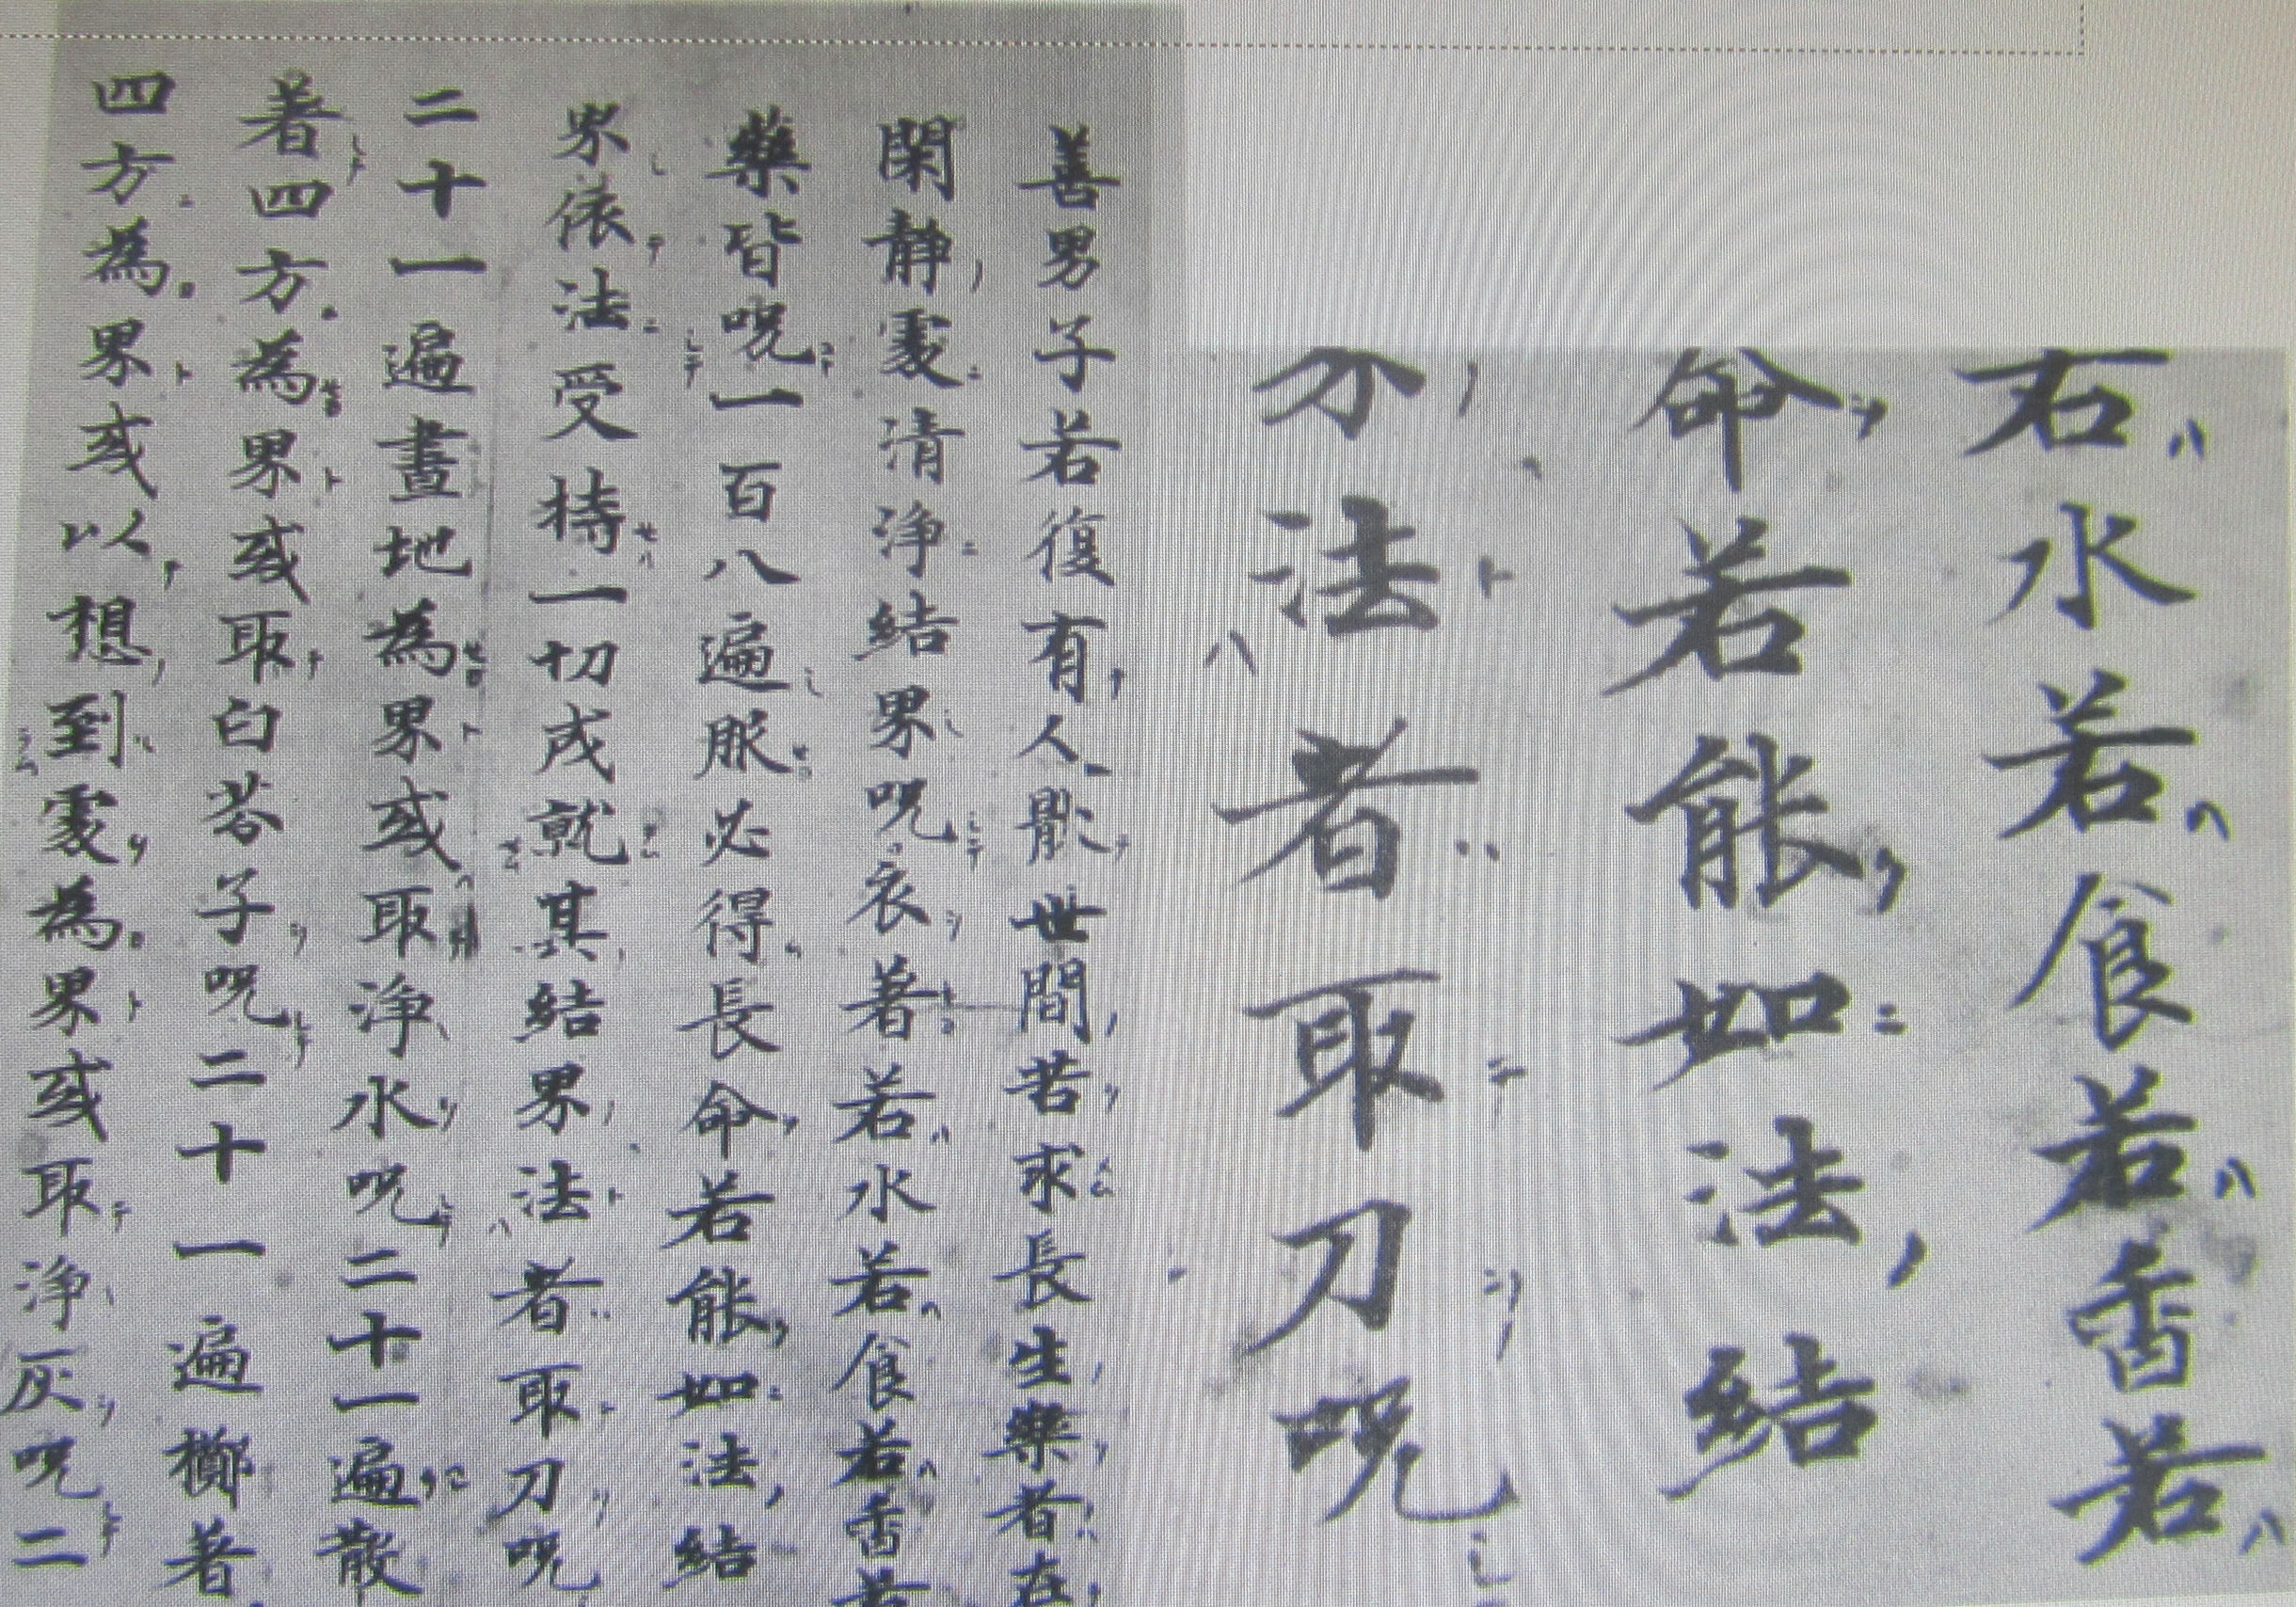 若水若食若香若
命若能如法結
界法者取刀呪
善男子若復有人猒世間苦求長生樂者在
閑静處清浄結界呪衣著若水若食若香若
藥皆呪一百八遍服必得長命若能如法結
界依法受持一切成就其結界法者取刀呪
二十一遍畫地為界或取浄水呪二十一遍散
著四方為界或取白芥子呪二十一遍擲著
四方為界或以想到處為界或取浄灰呪二